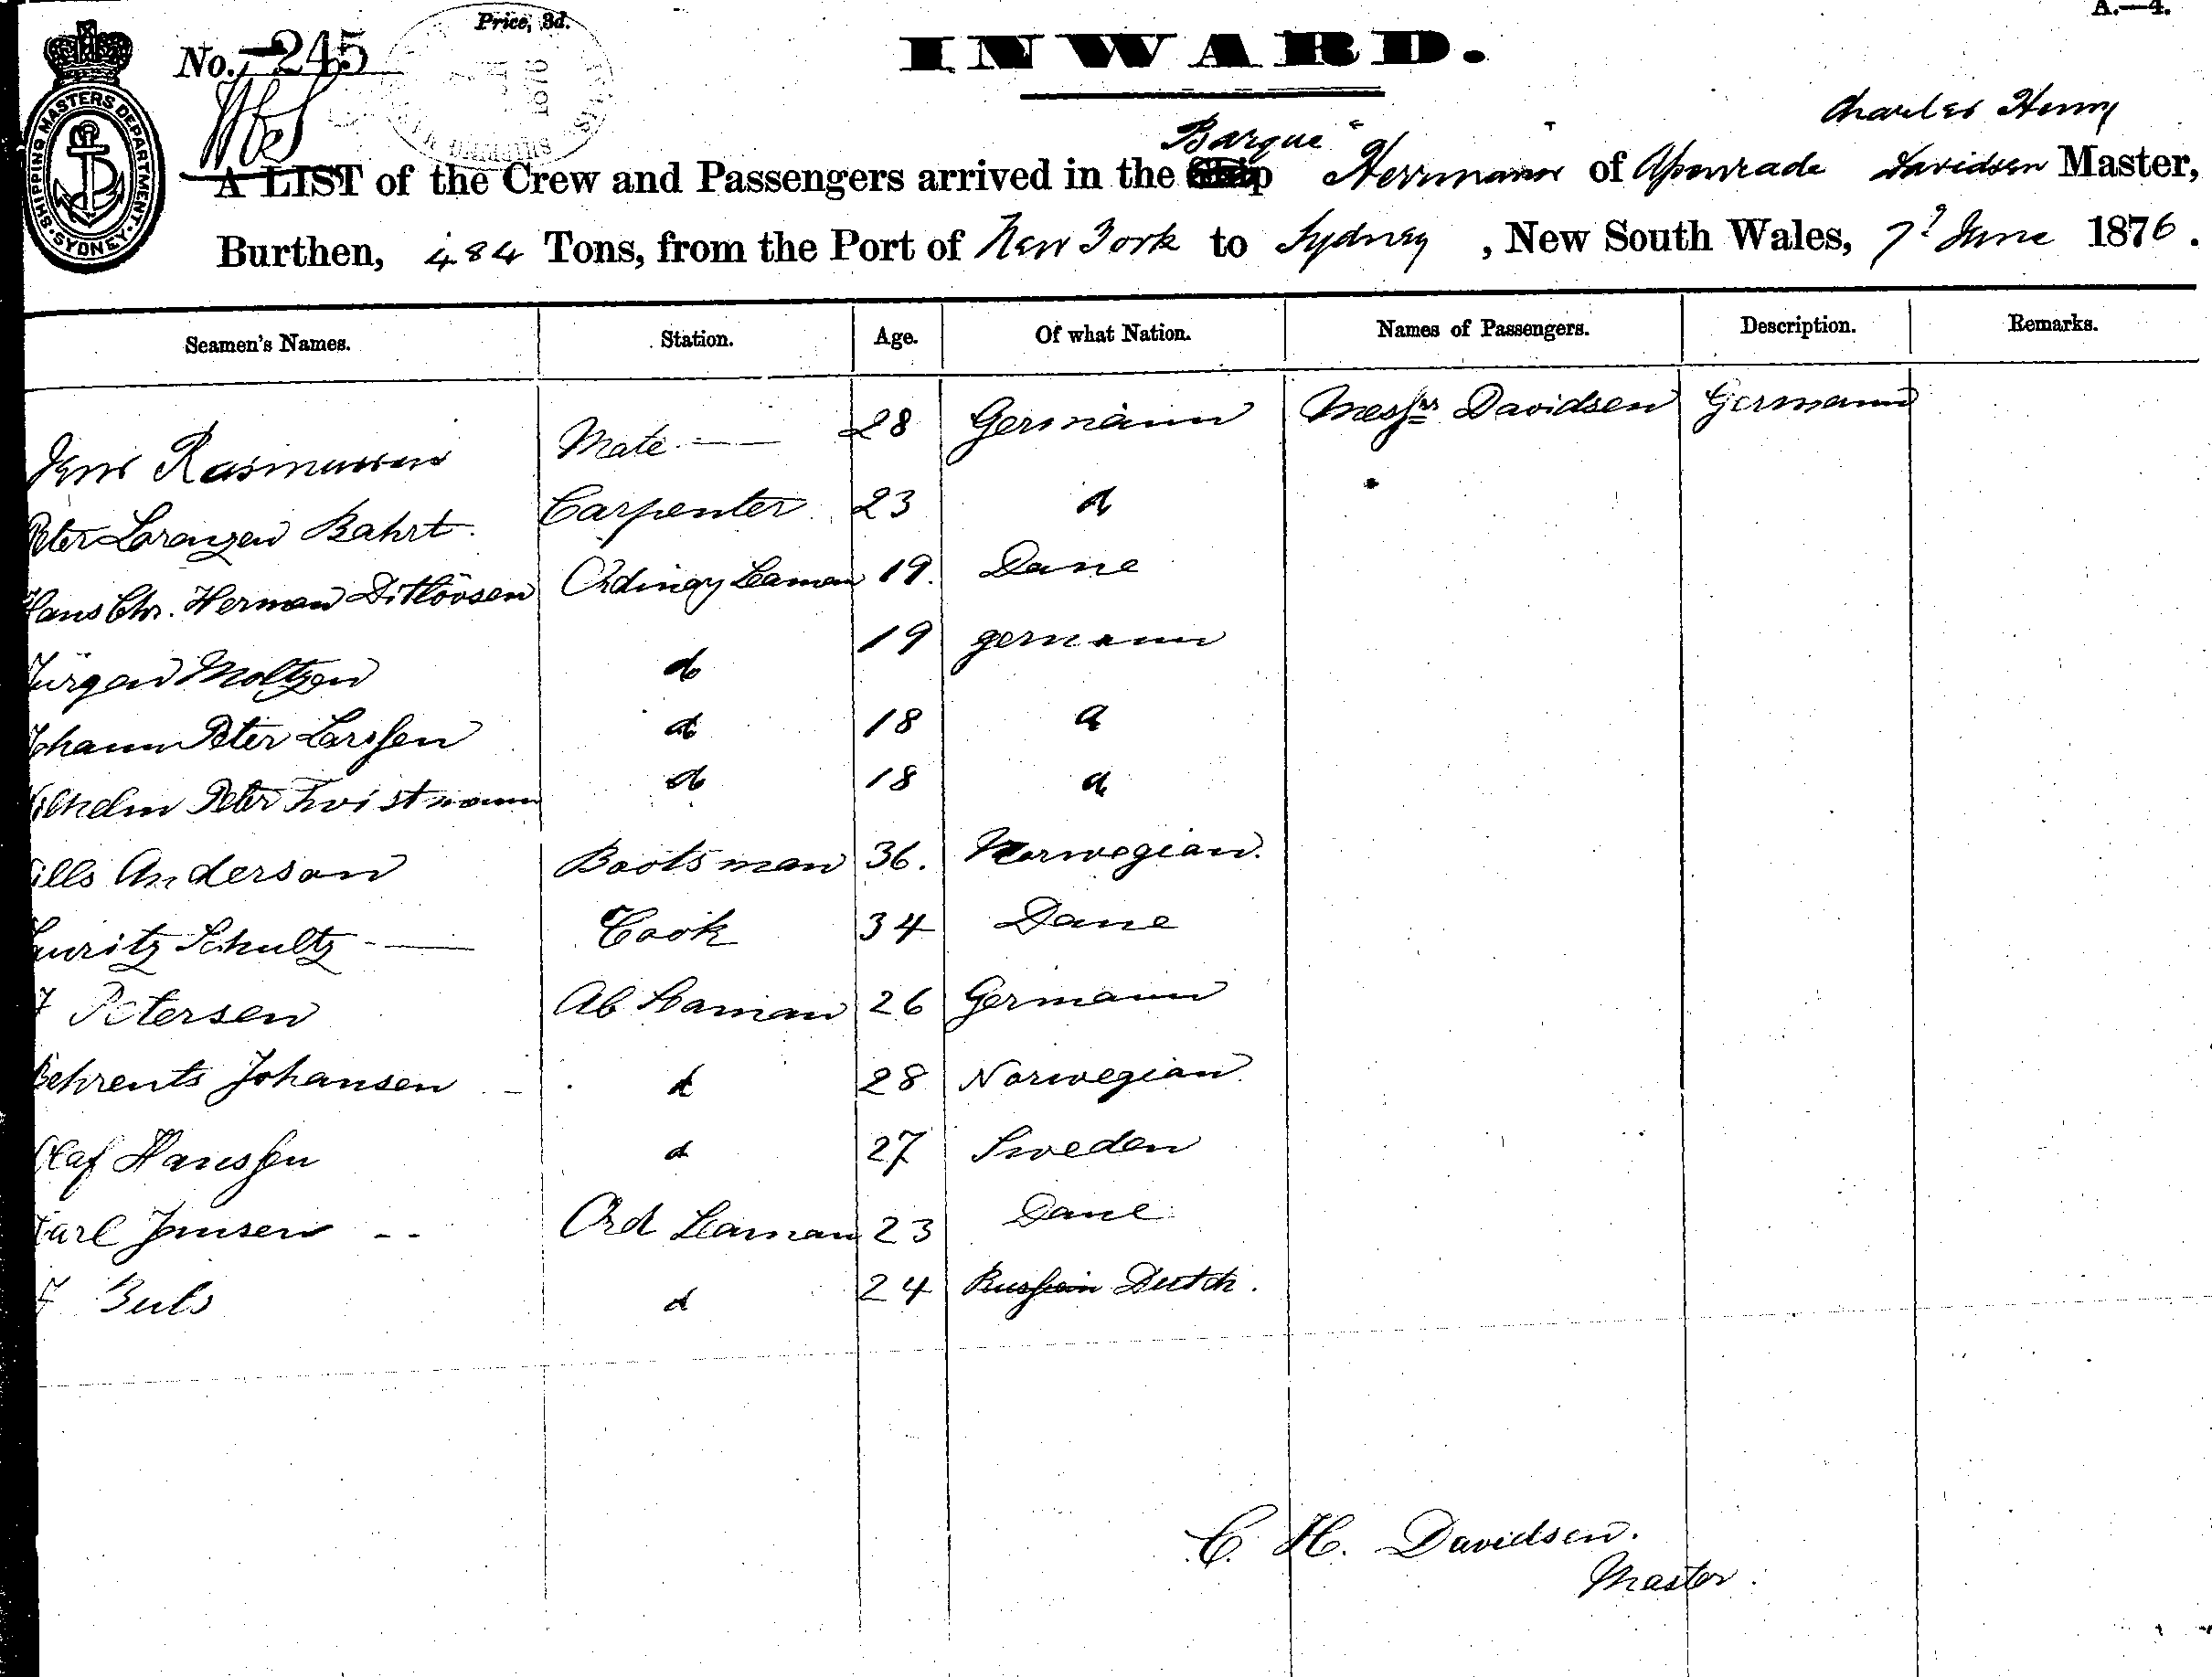 A.—4.
Price, 3d.
No. 245
INWARD.
SHIPPING MASTERS DEPARTMENT
SYDNEY
Charles Henry
Barque
A LIST of the Crew and Passengers arrived in the Ship Herrmann of Apenrade Davidsen Master,
Burthen, 484 Tons, from the Port of New York to Sydney, New South Wales, 7 June 1876.
Seamen's Names. Station. Age. Of what Nation. Names of Passengers. Description. Remarks.
Jens Rasmussen Mate — 28 Germann Davidsen Germann
Peter Lorenzen Bahrt. Carpenter 23 do
Hans Chr. Herman Ditlövsen Ordinary Seaman 19. Dane
Jürgen Moltzen do 19 germann
Johann Peter Lorssen do 18 do
Wilhelm Peter Twistmann do 18 do
Nills Anderson Bootsman 36. Norwegian.
Lauritz Schultz — Cook 34 Dane
Petersen Ab Seaman 26 Germann
Behrents Johansen do 28 Norwegian.
Olaf Hanssen do 27 Sweden
Karl Jansen -- Ord Seaman 23 Dane
do 24 Russian Dutch.
C. H. Davidsen.
Master.